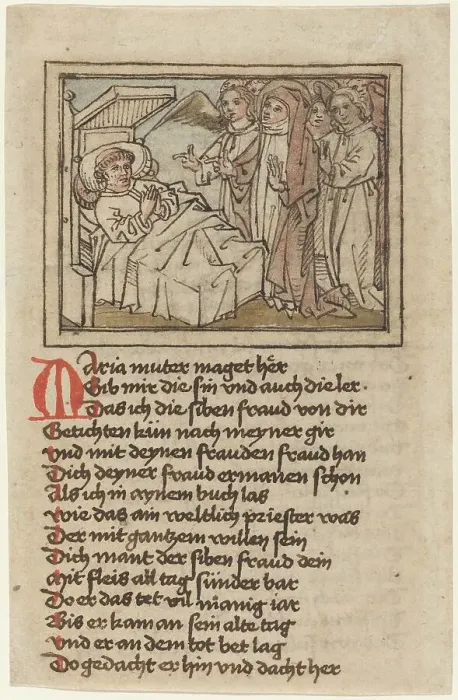 Maria muter maget her
Gib mir die sin vnd auch die ler.
Das ich die siben fraud von dir
Getichten kün nach meyner gir
vnd mit deynen frauden fraud han
Dich deyner fraud ermanen schon
Als ich in aynem buch las
wie das ain weltlich priester was
Der mit gantzem willen sein
Dich mant der siben fraud dein
mit fleis all tag sunder bar
Do er das tet vil manig iar
Bis er kam an sein alte tag
vnd er an dem tot bet lag
Do gedacht er hin vnd dacht her